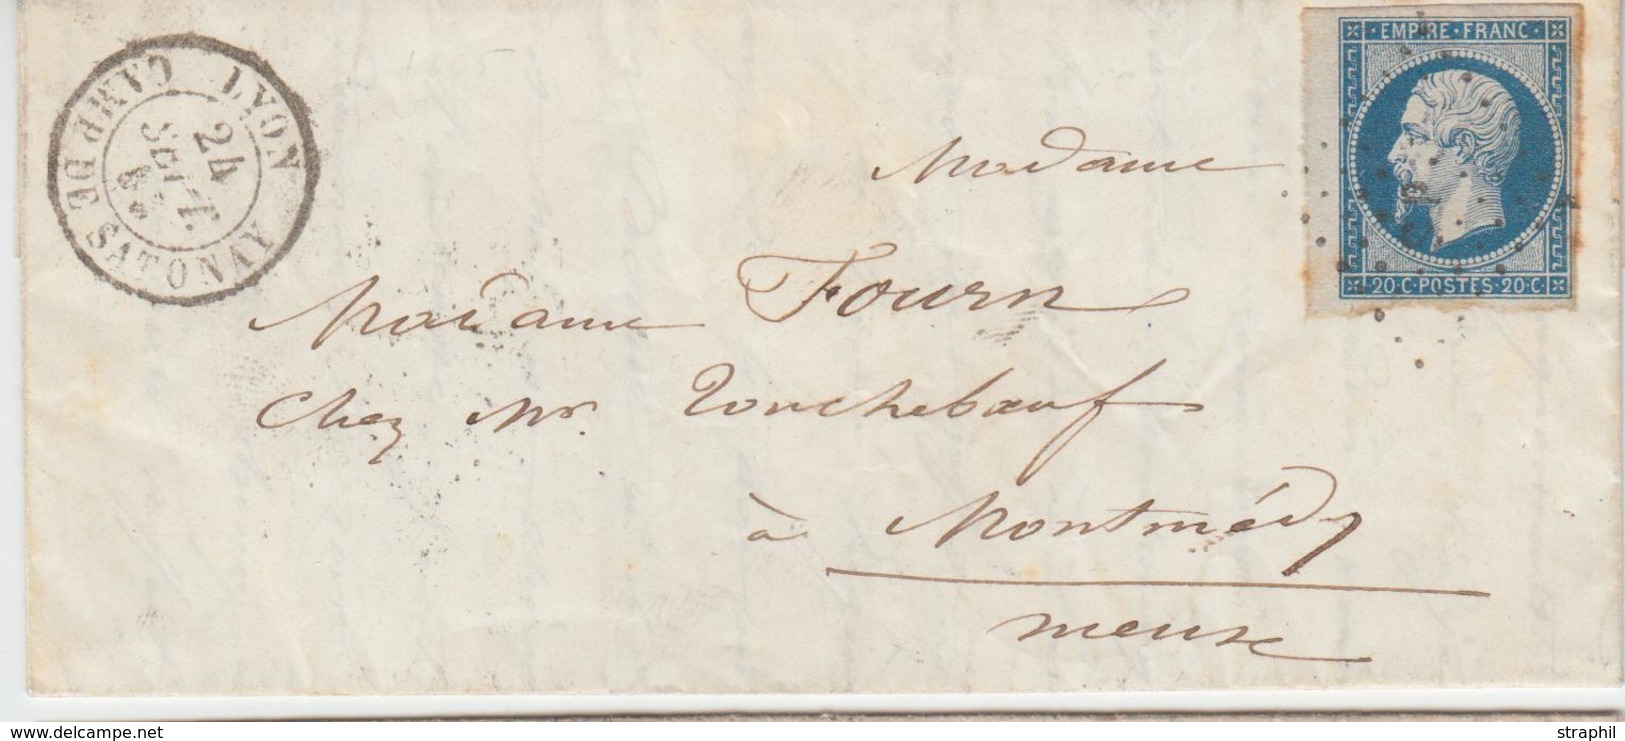 LYON
CAMP DE SATONAY
24
SEPT.
EMPIRE · FRANC ·
20 · C · POSTES · 20 · C ·
Madame
Madame Fourn
Chez Mr Tonchebœuf
à Montmédy
meuse
www.delcampe.net
straphil